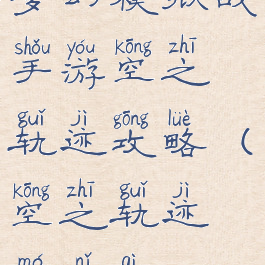 shǒu yóu kōng zhī
手游空之
guǐ jì gōng lüè
轨迹攻略（
kōng zhī guǐ jì
空之轨迹
mó nǐ qì